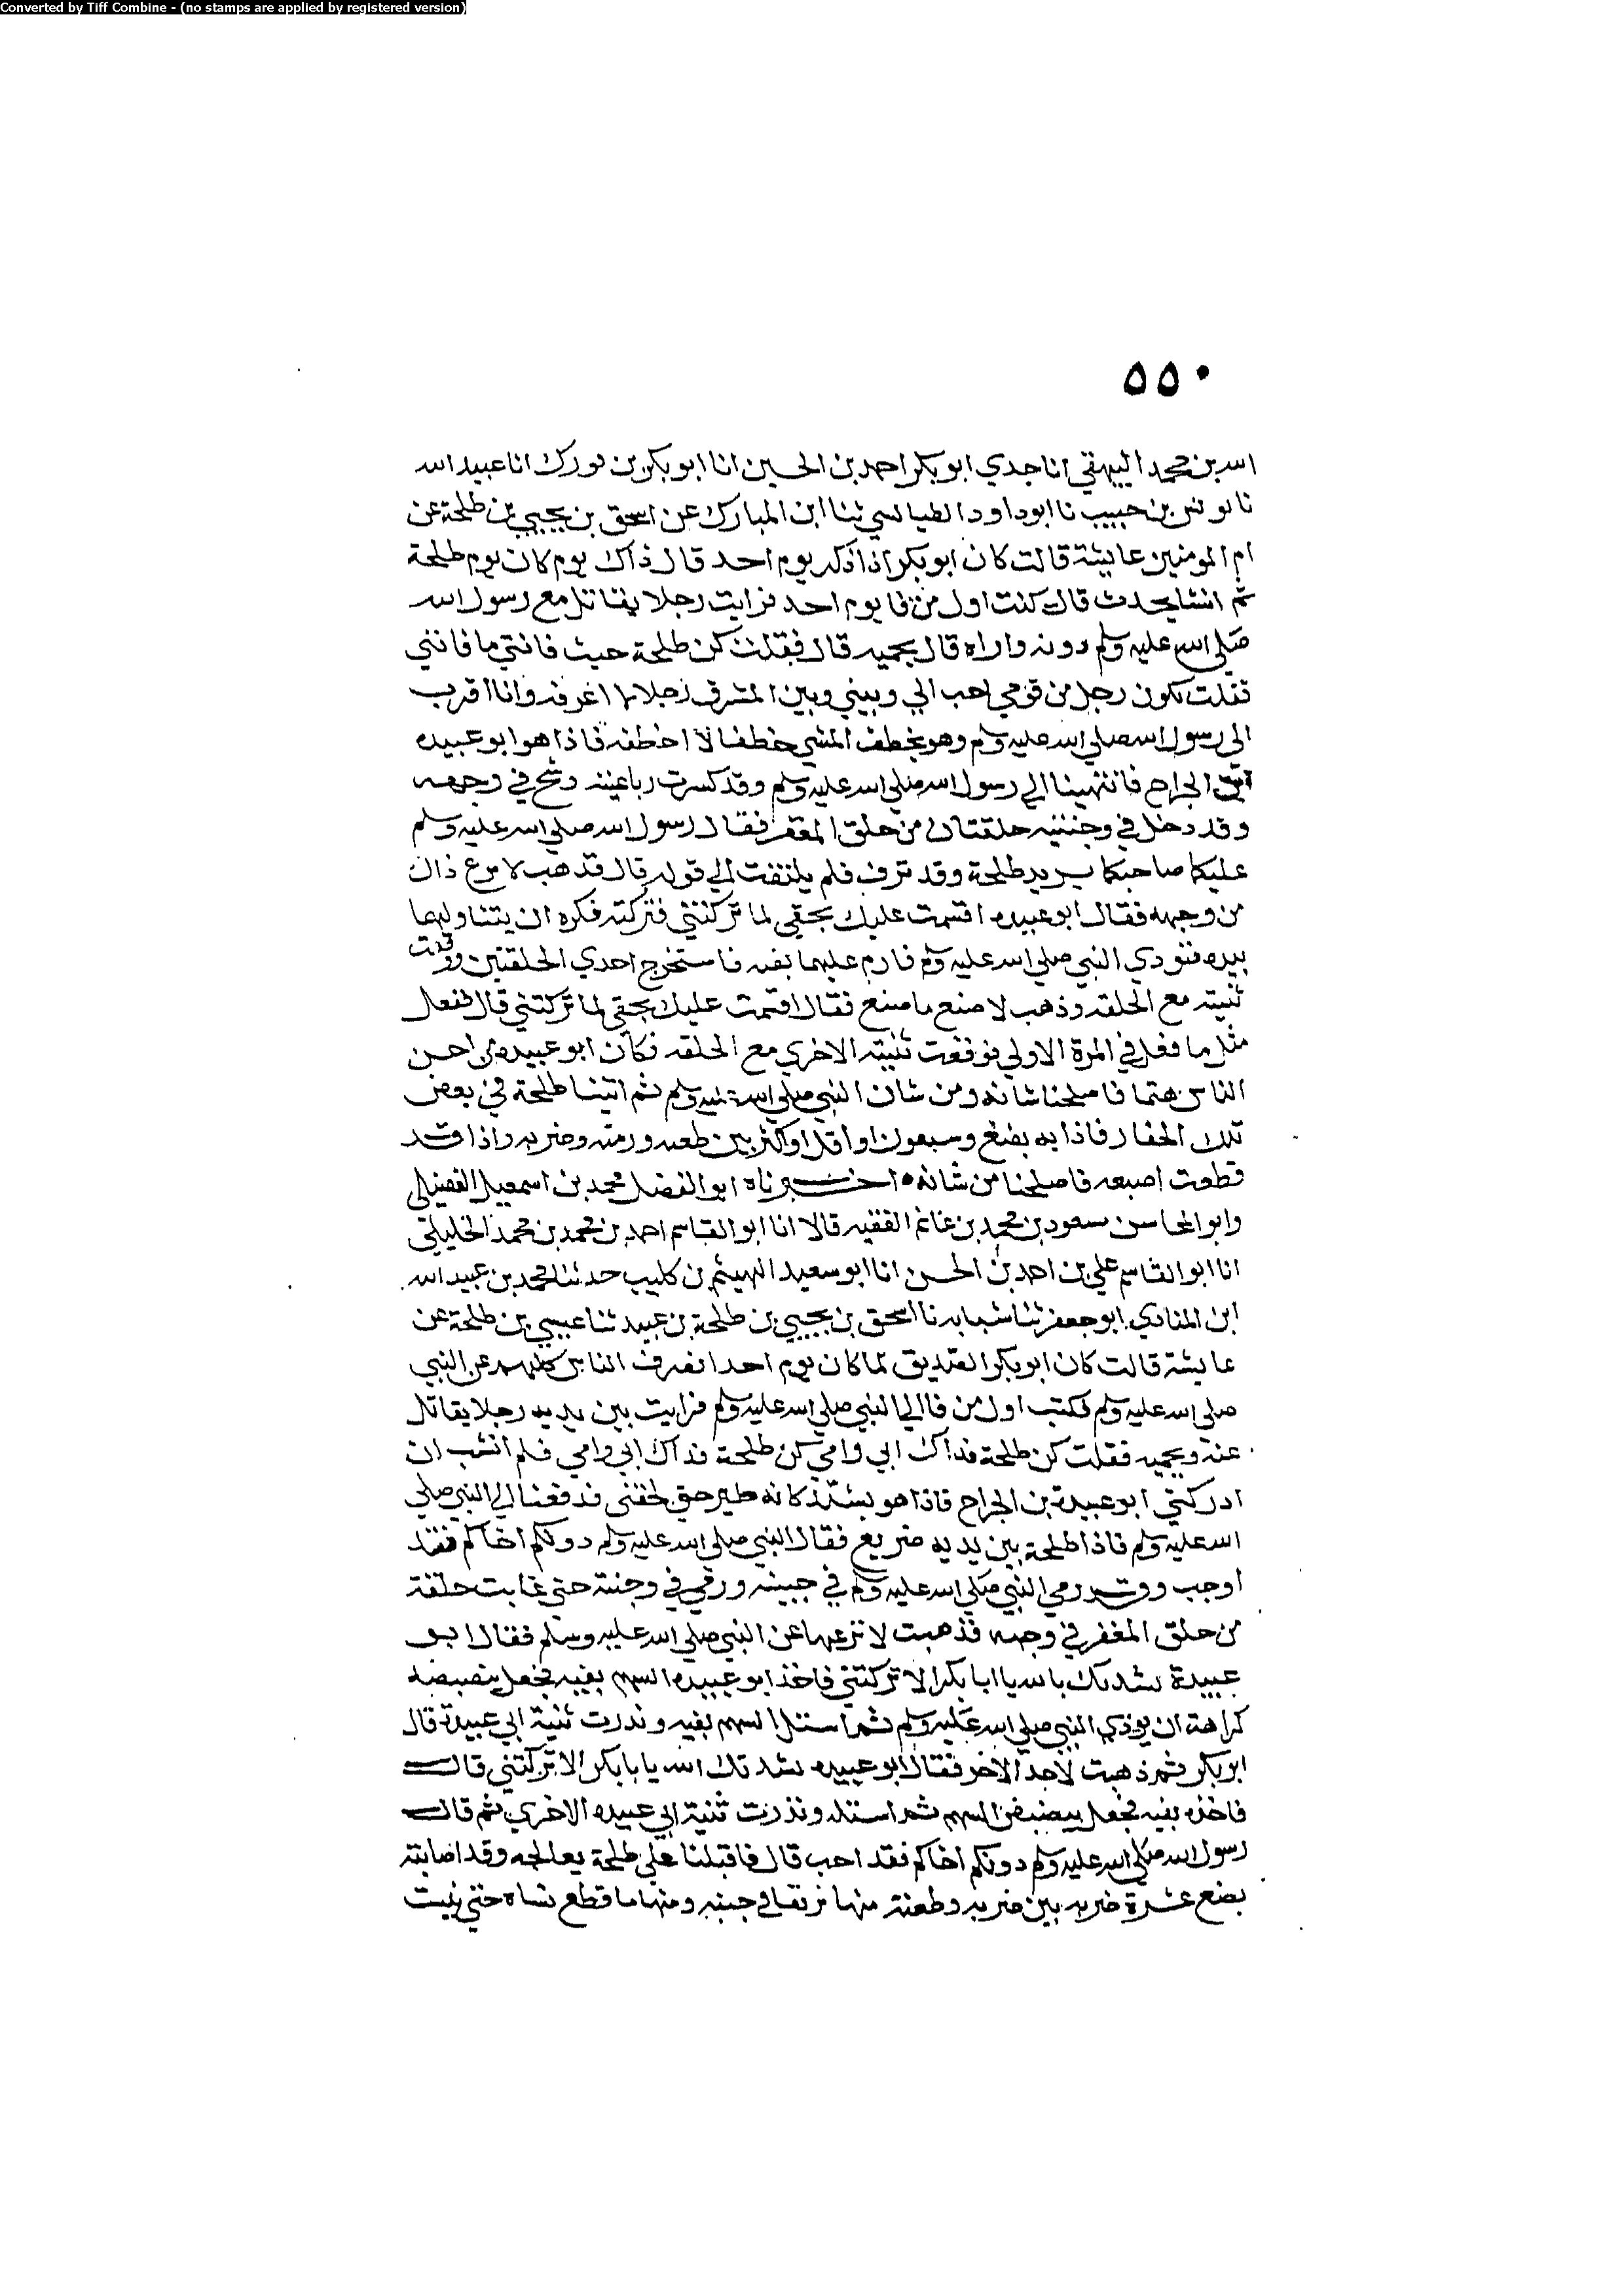 Converted by Tiff Combine - (no stamps are applied by registered version)
٥٥٠
الله بن محمد البيهقي انا جدي ابو بكر احمد بن الحسين انا ابو بكر بن فورك انا عبيد الله
نا يونس بن حبيب نا ابو داود الطيالسي ثنا ابن المبارك عن اسحق بن يحيي بن طلحة عن
ام المومنين عايشة قالت كان ابو بكر اذا ذكر يوم احد قال ذاك يوم كان يوم طلحة
ثم انشا يحدث قال كنت اول من فا يوم احد فرايت رجلا يقاتل مع رسول الله
صلى الله عليه وسلم دونه واراه قال يحميه قال فقلت كن طلحة حيث فاتني ما فاتني
فقلت يكون رجل من قومي احب الي وبيني وبين المشرق رجلا لا اعرفه وانا اقرب
الى رسول الله صلى الله عليه وسلم وهو يخطف المشي خطفا لا اخطفه فاذا هو ابو عبيده
ابن الجراح فانتهينا الي رسول الله صلى الله عليه وسلم وقد كسرت رباعيته وشج في وجهه
وقد دخل في وجنتيه حلقتان من حلق المغفر فقال رسول الله صلى الله عليه وسلم
عليكما صاحبكما يريد طلحة وقد نزف فلم يلتفت الي قوله قال فذهب لانزع ذاك
من وجهه فقال ابو عبيده اقسمت عليك بحقي لما تركتني فتركته فكره ان يتناولهما
بيده فتوذي النبي صلى الله عليه وسلم فازم عليهما بفيه فاستخرج احدي الحلقتين ووقعت
ثنيته مع الحلقه وذهب لاصنع ما صنع فقال اقسمت عليك بحقي لما تركتني قال ففعل
مثل ما فعل في المرة الاولي فوقعت ثنيته الاخري مع الحلقه فكان ابو عبيده من احسن
الناس هتما فاصلحنا شانه ومن شان النبي صلى الله عليه وسلم ثم اتينا طلحة في بعض
تلك الحفار فاذا به بضع وسبعون او اقل او اكثر بين طعنه ورميه وضربه واذا قد
قطعت اصبعه فاصلحنا من شانه ٥ اخبرناه ابو الفضل محمد بن اسمعيل الفضيلي
وابو المحاسن مسعود بن محمد بن غانم الفقيه قالا انا ابو القاسم احمد بن محمد بن محمد الخليلي
انا ابو القاسم علي بن احمد بن الحسن انا ابو سعيد الهيثم بن كليب حدثنا محمد بن عبيد الله
ابن المنادي ابو جعفر ثنا شبابه نا اسحق بن يحيي بن طلحة بن عبيد ثنا عيسي بن طلحة عن
عايشة قالت كان ابو بكر الصديق لما كان يوم احد انصرف الناس كلهم عن النبي
صلى الله عليه وسلم فكنت اول من فا الي النبي صلى الله عليه وسلم فرايت بين يديه رجلا يقاتل
عنه ويحميه فقلت كن طلحة فداك ابي وامي كن طلحة فداك ابي وامي فلم انشب ان
ادركني ابو عبيدة بن الجراح فاذا هو يشتد كانه طير حتى لحقني فدفعنا الي النبي صلى
الله عليه وسلم فاذا طلحة بين يديه صريع فقال النبي صلى الله عليه وسلم دونكم اخاكم فقد
اوجب وقد رمي النبي صلى الله عليه وسلم في جبينه ورمي في وجنته حتى غابت حلقة
من حلق المغفر في وجهه فذهبت لانزعها عن النبي صلى الله عليه وسلم فقال ابو
عبيدة نشدتك بالله يا ابا بكر الا تركتني فاخذ ابو عبيده السهم بفيه فجعل ينضنضه
كراهة ان يوذي النبي صلى الله عليه وسلم ثم استل السهم بفيه وندرت ثنية ابي عبيدة قال
ابو بكر ثم ذهبت لاخذ الاخر فقال ابو عبيده نشدتك الله يا بابكر الا تركتني قال
فاخذه بفيه فجعل ينضنض السهم ثم استله وندرت ثنية ابي عبيده الاخري ثم قال
رسول الله صلى الله عليه وسلم دونكم اخاكم فقد اوجب قال فاقبلنا علي طلحة يعالجه وقد اصابته
بضع عشرة ضربه بين ضربه وطعنة منها في جبينه ومنها ما قطع نساه حتي